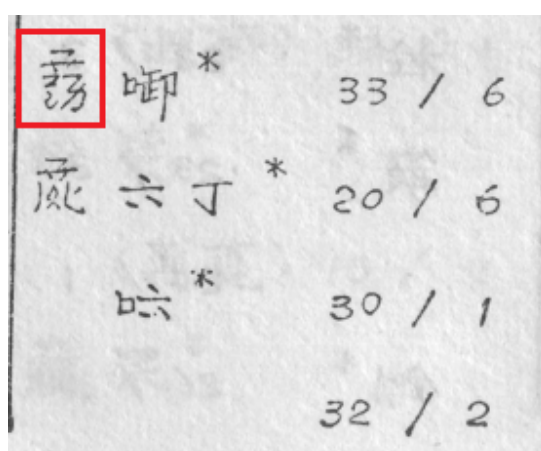 啣* 33 / 6
六丁* 20 / 6
* 30 / 1
32 / 2